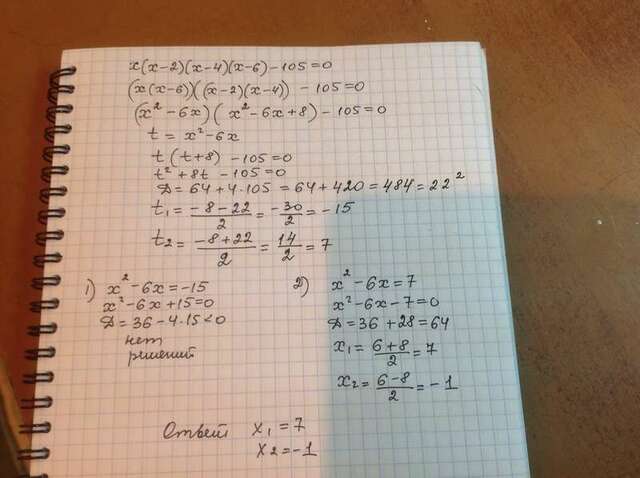 x(x-2)(x-4)(x-6)-105=0
(x(x-6))((x-2)(x-4)) -105=0
(x²-6x)(x²-6x+8)-105=0
t = x²-6x
t(t+8) -105=0
t²+8t -105=0
D = 64+4·105 = 64+420=484=22²
t₁ = (-8-22)/2 = -30/2 = -15
t₂ = (-8+22)/2 = 14/2 = 7
1) x²-6x=-15
x²-6x+15=0
D=36-4·15<0
нет
решений
2) x²-6x=7
x²-6x-7=0
D=36+28=64
x₁= (6+8)/2 = 7
x₂= (6-8)/2 = -1
Ответ x₁=7
x₂=-1